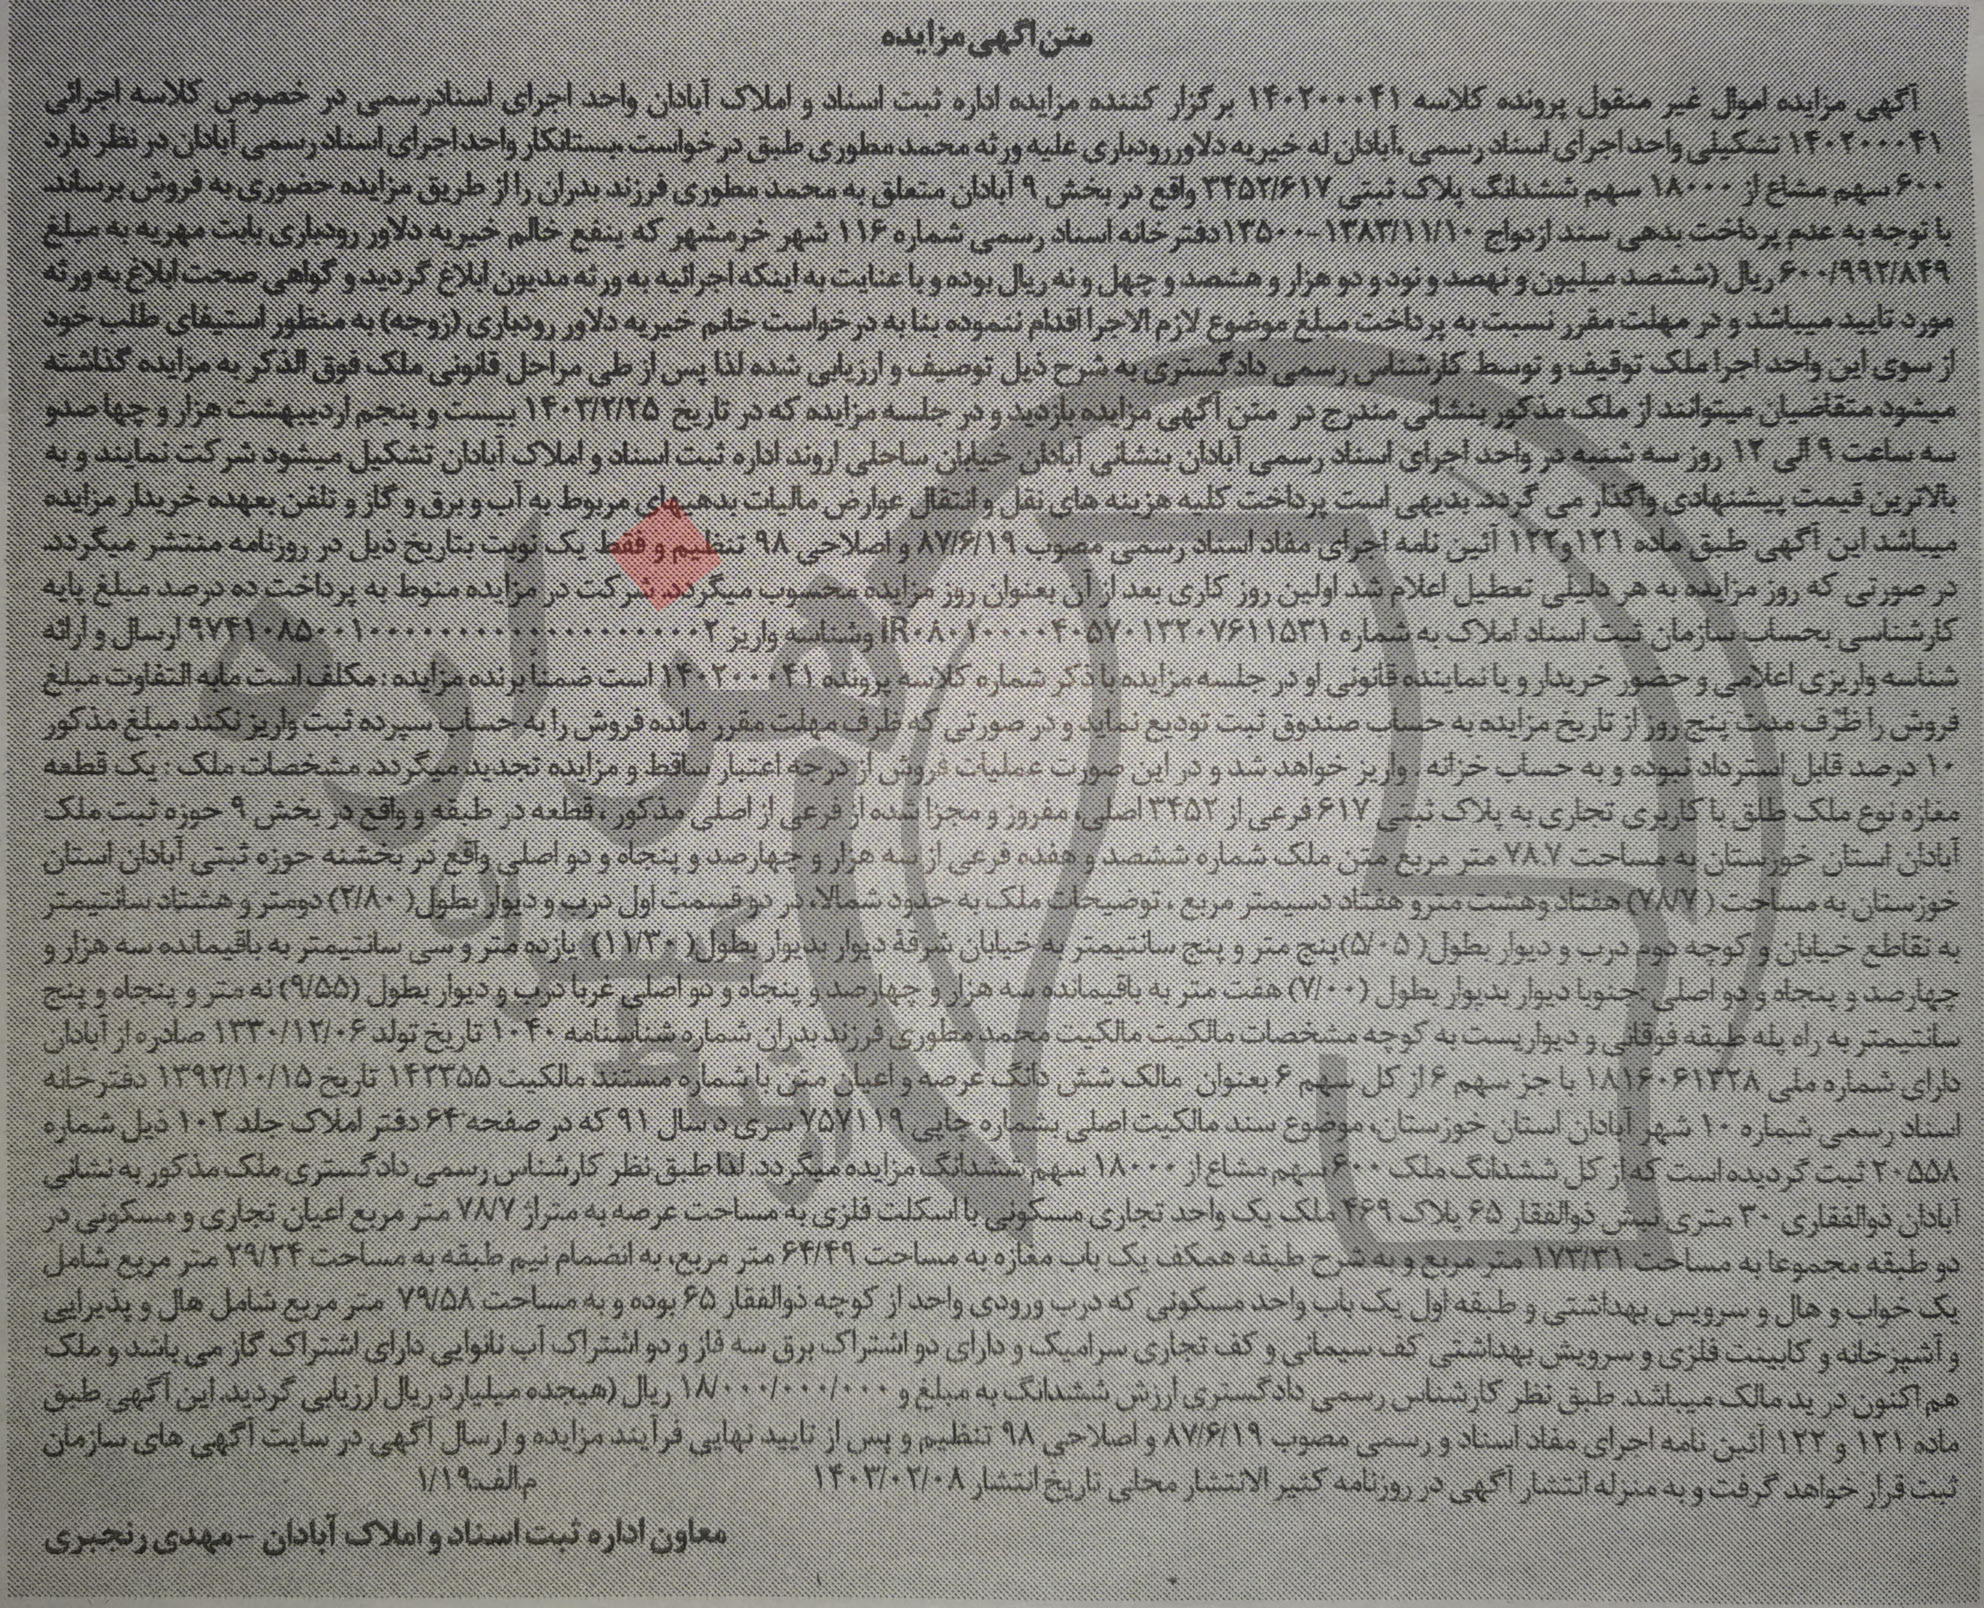 متن آگهی مزایده
آگهی مزایده اموال غیر منقول پرونده کلاسه ۱۴۰۲۰۰۰۴۱ برگزار کننده مزایده اداره ثبت اسناد و املاک آبادان واحد اجرای اسنادرسمی در خصوص کلاسه اجرائی
۱۴۰۲۰۰۰۴۱ تشکیلی واحد اجرای اسناد رسمی .آبادان له خیریه دلاوررودباری علیه ورثه محمد مطوری طبق درخواست بستانکار واحد اجرای اسناد رسمی آبادان در نظر دارد
۶۰۰ سهم مشاع از ۱۸۰۰۰ سهم ششدانگ پلاک ثبتی ۳۴۵۲/۶۱۷ واقع در بخش ۹ آبادان متعلق به محمد مطوری فرزند بدران را از طریق مزایده حضوری به فروش برساند.
با توجه به عدم پرداخت بدهی سند ازدواج ۱۳۸۳/۱۱/۱۰-۱۳۵۰۰دفترخانه اسناد رسمی شماره ۱۱۶ شهر خرمشهر که بنفع خالم خیریه دلاور رودباری بابت مهریه به مبلغ
۶۰۰/۹۹۲/۸۴۹ ریال (ششصد میلیون و نهصد و نود و دو هزار و هشصد و چهل و نه ریال بوده و با عنایت به اینکه اجرائیه به ورثه مدیون ابلاغ گردید و گواهی صحت ابلاغ به ورثه
مورد تایید میباشد و در مهلت مقرر نسبت به پرداخت مبلغ موضوع لازم الاجرا اقدام ننموده بنا به درخواست خانم خیریه دلاور رودباری (زوجه) به منظور استیفای طلب خود
از سوی این واحد اجرا ملک توقیف و توسط کارشناس رسمی دادگستری به شرح ذیل توصیف و ارزیابی شده لذا پس از طی مراحل قانونی ملک فوق الذکر به مزایده گذاشته
میشود متقاضیان میتوانند از ملک مذکور بنشانی مندرج در متن آگهی مزایده بازدید و در جلسه مزایده که در تاریخ ۱۴۰۳/۲/۲۵ بیست و پنجم اردیبهشت هزار و چهاصدو
سه ساعت ۹ الی ۱۲ روز سه شنبه در واحد اجرای اسناد رسمی آبادان بنشانی آبادان خیابان ساحلی اروند اداره ثبت اسناد و املاک آبادان تشکیل میشود شرکت نمایند و به
بالاترین قیمت پیشنهادی واگذار می گردد. بدیهی است پرداخت کلیه هزینه های نقل و انتقال عوارض مالیات بدهیهای مربوط به آب و برق و گاز و تلفن بعهده خریدار مزایده
میباشد این آگهی طبق ماده ۱۲۱و۱۲۲ آئین نامه اجرای مفاد اسناد رسمی مصوب ۸۷/۶/۱۹ و اصلاحی ۹۸ تنظیم و فقط یک نوبت بتاریخ ذیل در روزنامه منتشر میگردد.
در صورتی که روز مزایده به هر دلیلی تعطیل اعلام شد اولین روز کاری بعد از آن بعنوان روز مزایده محسوب میگردد. شرکت در مزایده منوط به پرداخت ده درصد مبلغ پایه
کارشناسی بحساب سازمان ثبت اسناد املاک به شماره IR۰۸۰۱۰۰۰۰۴۰۵۷۰۱۳۲۰۷۶۱۱۵۳۱ وشناسه واریز ارسال و ارائه
شناسه واریزی اعلامی و حضور خریدار و یا نماینده قانونی او در جلسه مزایده با ذکر شماره کلاسه پرونده ۱۴۰۲۰۰۰۴۱ است ضمناً برنده مزایده : مکلف است مابه التفاوت مبلغ
فروش را ظرف مدت پنج روز از تاریخ مزایده به حساب صندوق ثبت تودیع نماید و در صورتی که ظرف مهلت مقرر مانده فروش را به حساب سپرده ثبت واریز نکند مبلغ مذکور
۱۰ درصد قابل استرداد نبوده و به حساب خزانه . واریز خواهد شد و در این صورت عملیات فروش از درجه اعتبار ساقط و مزایده تجدید میگردد. مشخصات ملک : یک قطعه
مغازه نوع ملک طلق با کاربری تجاری به پلاک ثبتی ۶۱۷ فرعی از ۳۴۵۲ اصلی، مفروز و مجزا شده از فرعی از اصلی مذکور ، قطعه در طبقه و واقع در بخش ۹ حوزه ثبت ملک
آبادان استان خوزستان به مساحت ۷۸.۷ متر مربع متن ملک شماره ششصد و هفده فرعی از سه هزار و چهارصد و پنجاه و دو اصلی واقع در بخشنه حوزه ثبتی آبادان استان
خوزستان به مساحت (۷۸/۷) هفتاد وهشت مترو هفتاد دسیمتر مربع ، توضیحات ملک به حدود شمالا، در دو قسمت اول درب و دیوار بطول( ۲/۸۰) دومتر و هشتاد سانتیمتر
به تقاطع خیابان و کوچه دوم درب و دیوار بطول( ۵/۰۵)پنج متر و پنج سانتیمتر به خیابان شرقۀ دیوار بدیوار بطول( ۱۱/۳۰) یازده متر و سی سانتیمتر به باقیمانده سه هزار و
چهارصد و پنجاه و دو اصلی :جنوبا دیوار بدیوار بطول (۷/۰۰) هفت متر به باقیمانده سه هزار و چهارصد و پنجاه و دو اصلی غربا درب و دیوار بطول (۹/۵۵) نه متر و پنجاه و پنج
سانتیمتر به راه پله طبقه فوقانی و دیواریست به کوچه مشخصات مالکیت مالکیت محمد مطوری فرزند بدران شماره شناسنامه ۱۰۴۰ تاریخ تولد ۱۳۳۰/۱۲/۰۶ صادره از آبادان
دارای شماره ملی ۱۸۱۶۰۶۱۳۲۸ با جز سهم ۶ از کل سهم ۶ بعنوان مالک شش دانگ عرصه و اعیان متن با شماره مستند مالکیت ۱۴۲۳۵۵ تاریخ ۱۳۹۲/۱۰/۱۵ دفترخانه
اسناد رسمی شماره ۱۰ شهر آبادان استان خوزستان، موضوع سند مالکیت اصلی بشماره چاپی ۷۵۷۱۱۹ سری د سال ۹۱ که در صفحه ۶۴ دفتر املاک جلد ۱۰۲ ذیل شماره
۲۰۵۵۸ ثبت گردیده است که از کل ششدانگ ملک ۶۰۰ سهم مشاع از ۱۸۰۰۰ سهم ششدانگ مزایده میگردد. لذا طبق نظر کارشناس رسمی دادگستری ملک مذکور به نشانی
آبادان ذوالفقاری ۳۰ متری نبش ذوالفقار ۶۵ پلاک ۴۶۹ ملک یک واحد تجاری مسکونی با اسکلت فلزی به مساحت عرصه به متراژ ۷۸/۷ متر مربع اعیان تجاری و مسکونی در
دو طبقه مجموعا به مساحت ۱۷۳/۳۱ متر مربع و به شرح طبقه همکف یک باب مغازه به مساحت ۶۴/۴۹ متر مربع، به انضمام نیم طبقه به مساحت ۲۹/۲۴ متر مربع شامل
یک خواب و هال و سرویس بهداشتی و طبقه اول یک باب واحد مسکونی که درب ورودی واحد از کوچه ذوالفقار ۶۵ بوده و به مساحت ۷۹/۵۸ متر مربع شامل هال و پذیرایی
و آشپزخانه و کابینت فلزی و سرویش بهداشتی کف سیمانی و کف تجاری سرامیک و دارای دو اشتراک برق سه فاز و دو اشتراک آب نانوایی دارای اشتراک گاز می باشد و ملک
هم اکنون در ید مالک میباشد. طبق نظر کارشناس رسمی دادگستری ارزش ششدانگ به مبلغ و ۱۸/۰۰۰/۰۰۰/۰۰۰ ریال (هیجده میلیارد ریال ارزیابی گردید. این آگهی طبق
ماده ۱۲۱ و ۱۲۲ آئین نامه اجرای مفاد اسناد و رسمی مصوب ۸۷/۶/۱۹ و اصلاحی ۹۸ تنظیم و پس از تایید نهایی فرآیند مزایده و ارسال آگهی در سایت آگهی های سازمان
ثبت قرار خواهد گرفت و به منزله انتشار آگهی در روزنامه کثیر الانتشار محلی تاریخ انتشار ۱۴۰۳/۰۲/۰۸ م.الف:۱/۱۹
معاون اداره ثبت اسناد و املاک آبادان - مهدی رنجبری